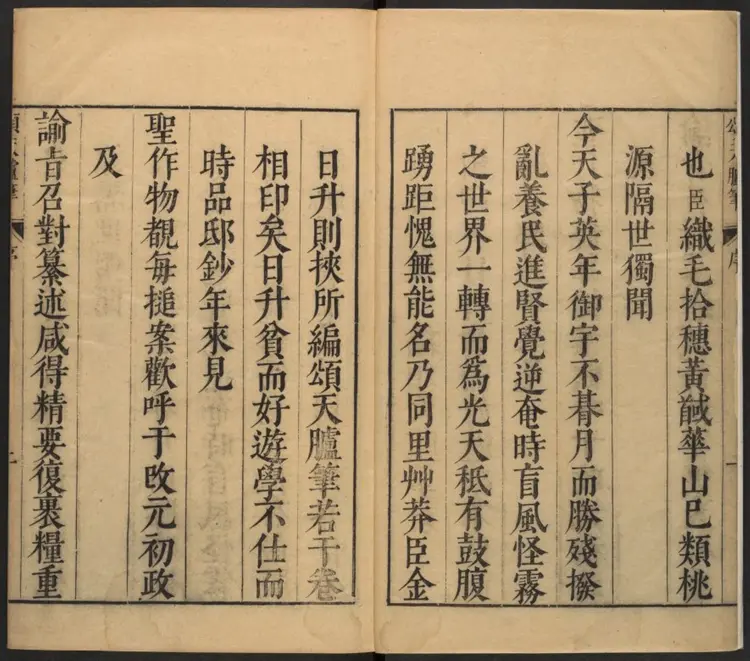 也臣織毛拾穗黃馘華山已類桃
源隔世獨聞
今天子英年御宇不朞月而勝殘撥
亂養民進賢覺逆奄時盲風怪霧
之世界一轉而爲光天秪有鼓腹
踴距愧無能名乃同里艸莽臣金
日升則挾所編頌天臚筆若干卷
相印矣日升貧而好遊學不仕而
時品邸鈔年來見
聖作物覩每搥案歡呼于改元初政
及
諭旨召對纂述咸得精要復裹糧重
頌天臚筆
序
一